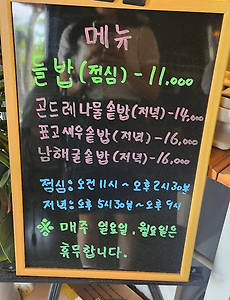 메뉴
들밥(점심)-11.000
곤드레나물솥밥(저녁)-14,000
표고새우솥밥(저녁)-16,000
남해굴솥밥(저녁)-16,000
점심:오전11시~오후2시30분
저녁:오후5시30분~오후9시
※ 매주 일요일,월요일은
휴무합니다.